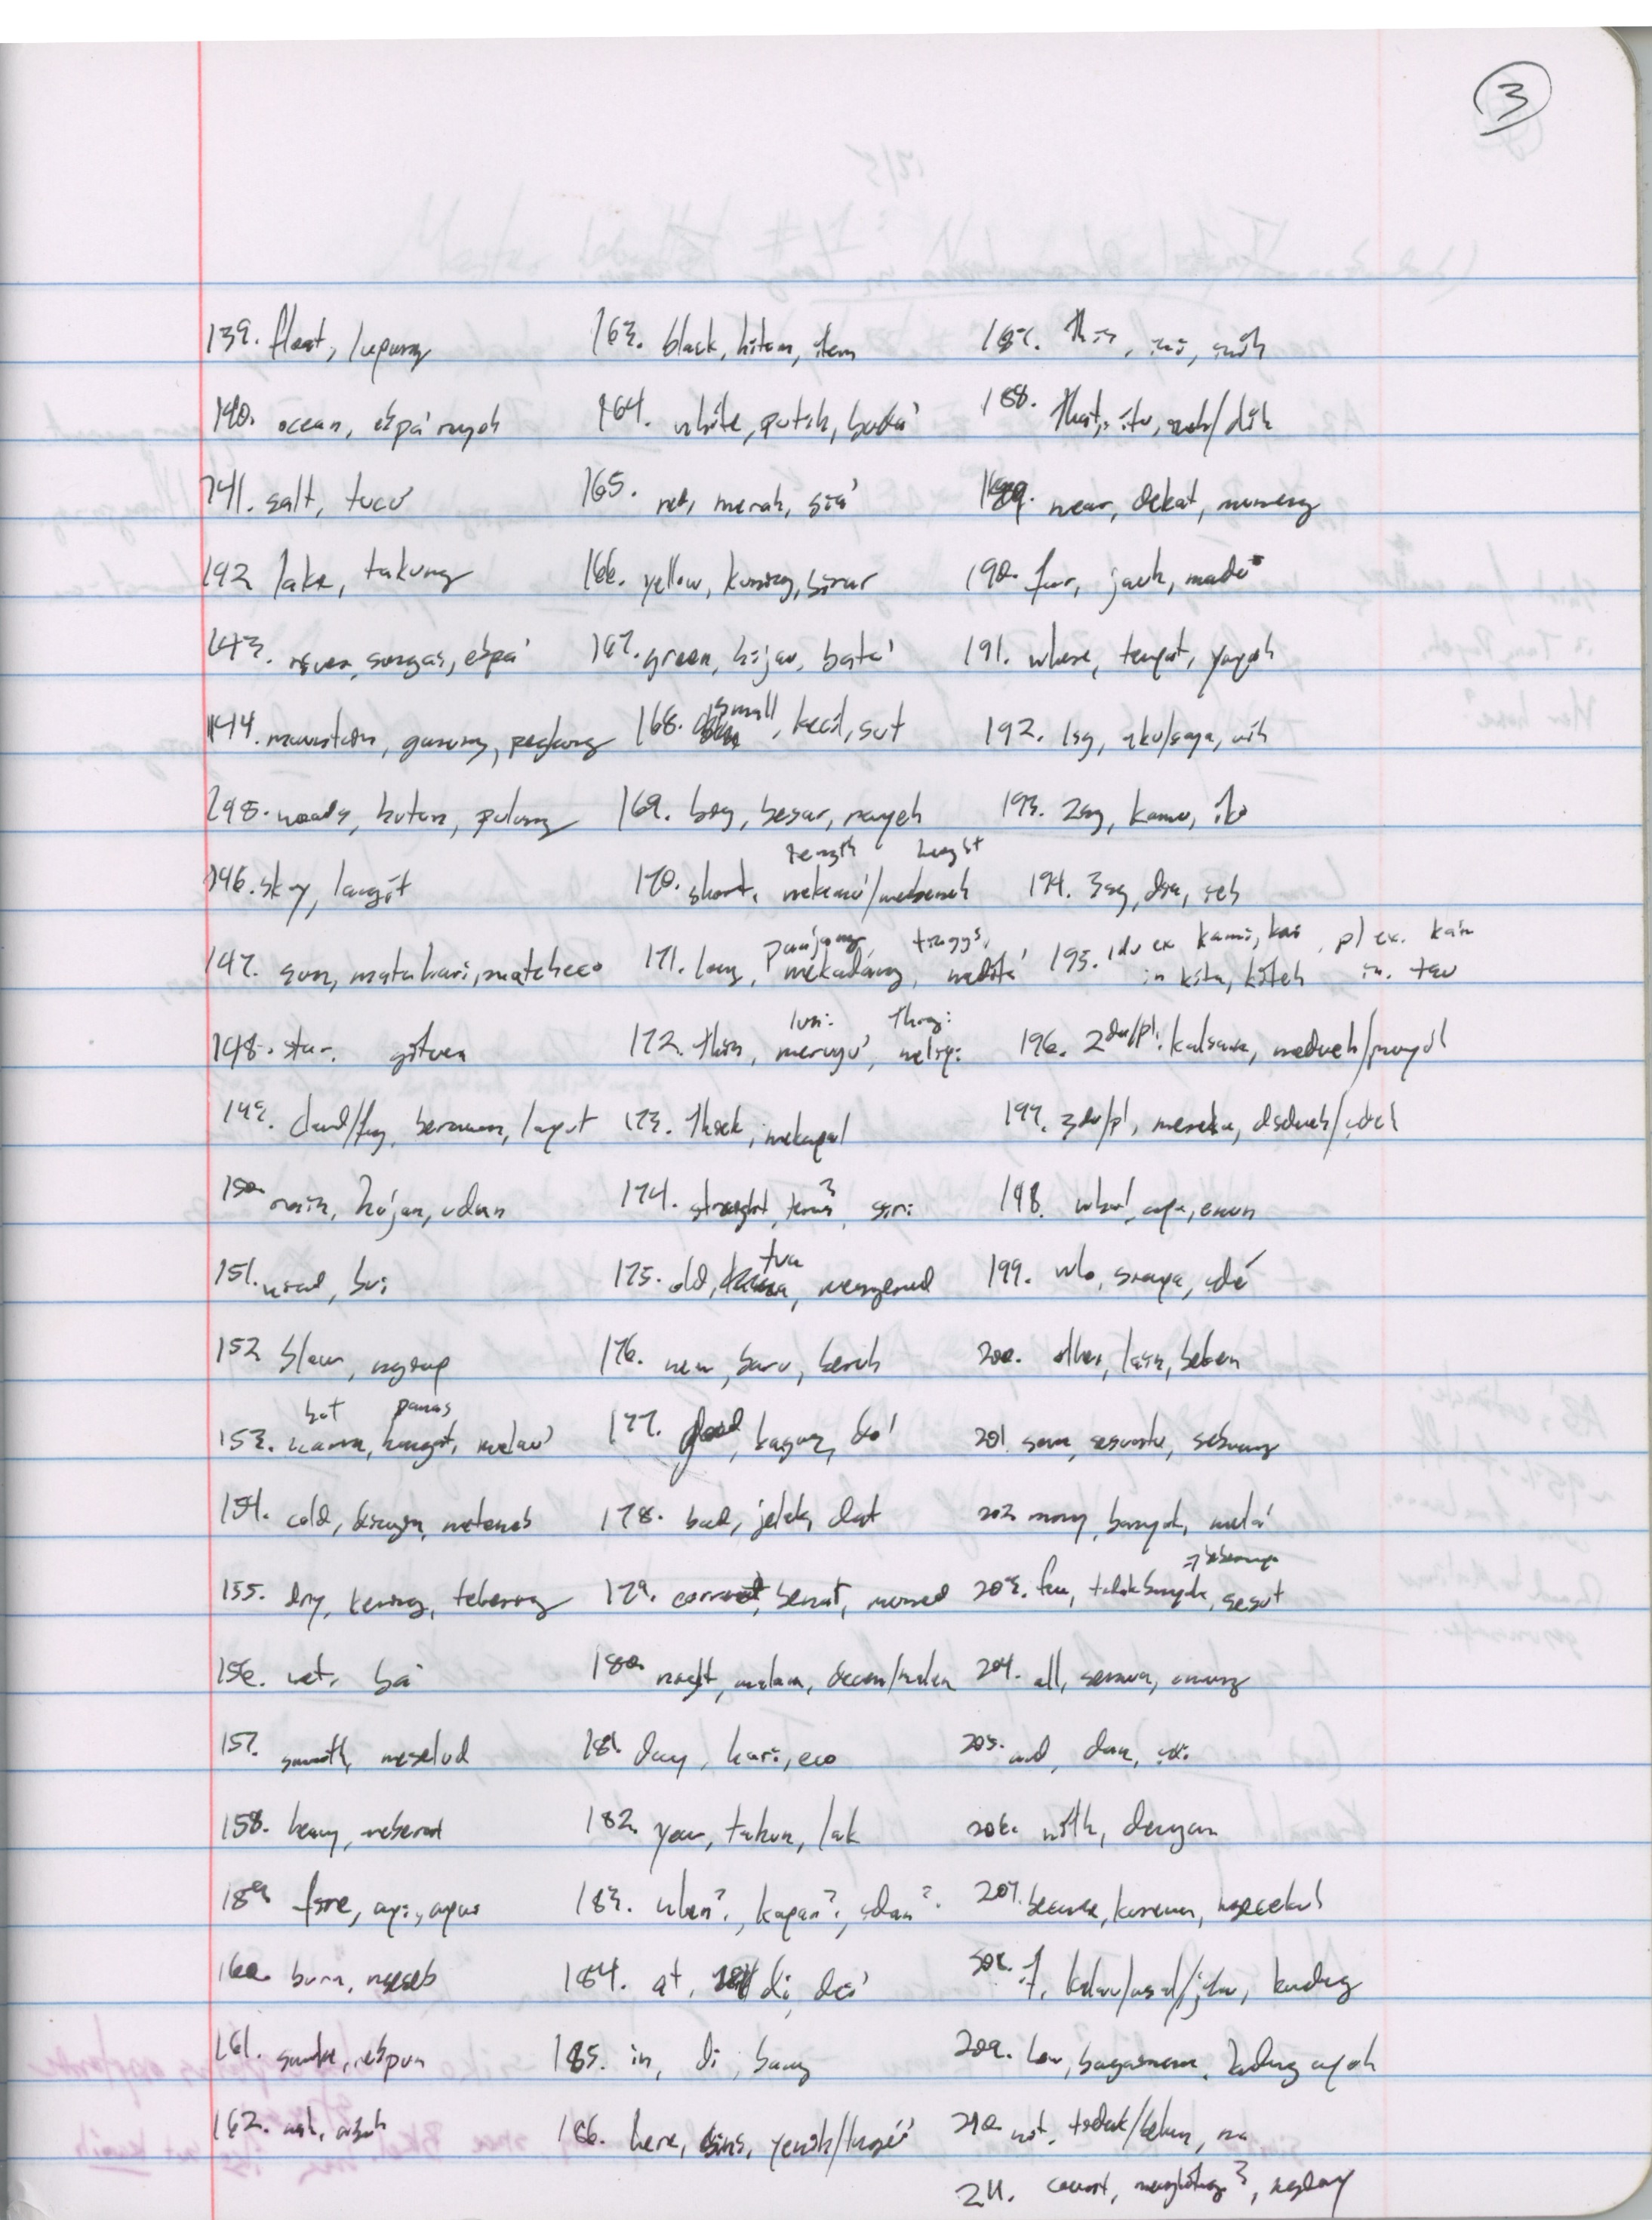 3
139. float, lepung
140. ocean, ebpa' rayeh
141. salt, tucu'
142 lake, takung
143. river, sungai, ebpa'
144. mountain, gunung,
145. woods, hutan, pulung
146. sky, langit
147. sun, matahari, mateheco
148. star, gituen
149. cloud/fog, berawan, laput
150. rain, hujan, udan
151. wind, bui
152 blow,
hot panas
153. warm, hangat, melau'
154. cold, meteneb
155. dry, kering, tebering
156. wet, ba'
157. smooth, meselud
158. heavy, meberat
159. fire, api, apui
160. burn, ngseb
161. smoke, rebpun
162. ash,
163. black, hitam, item
164. white, putih, buda'
165. red, merah, sia'
166. yellow, kuning, birar
167. green, hijau, bata'
168. small, kecil, sut
169. big, besar, rayeh
length height
170. short,
panjang, tinggi,
171. long, mekadang,
172. thin,
173. thick, mekapal
174. straight, terus?
tua
175. old,
176. new, baru, beruh
177. good, bagus, do'
178. bad, jelek, dat
179. correct,
180. night, malam, decem/malem
181. day, hari, eco
182. year, tahun, lak
183. when?, kapan?, idan?
184. at, di, dei'
185. in, di, bang
186. here,
187. this, ini, inih
188. that, itu, dih
189. near, dekat, moneng
190. far, jauh, mado'
191. where, tempat,
192. 1sg, aku/saya, uih
193. 2sg, kamu, iko
194. 3sg, dia, ieh
195. 1du ex kami, kai, pl ex. kain
in kita, kiteh in. tau
196. 2 du/pl: kalian, medueh/muyuh
197. 3du/pl, mereka,
198. what, apa, enun
199. who, siapa, idé
200. other, lain, beken
201. some, sesuatu, sebuang
202 many, banyak, mula'
=> beberapa
203. few, tidak banyak, sesut
204. all, semua,
205. and, dan, idi
206. with, dengan
207. because, karena,
208. if, kalau/asal/jika, kudeng
209. how, bagaimana, kudeng apeh
210. not, tidak/belum, na
211. count, menghitung?,